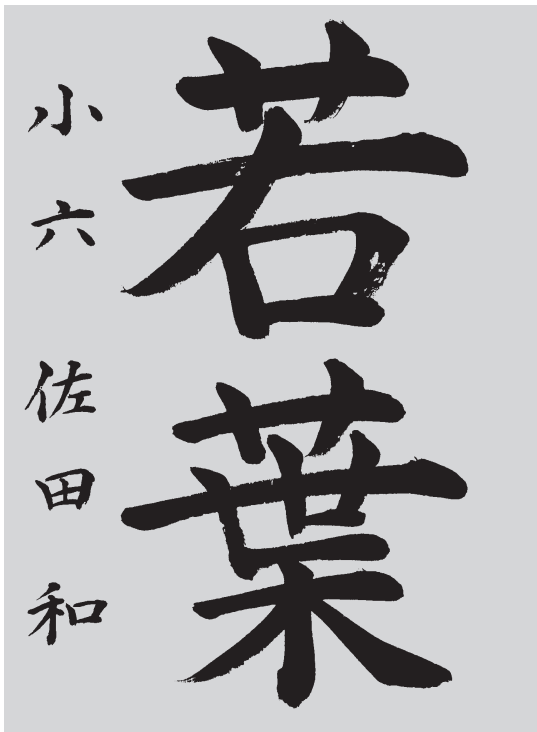 若葉
小六 佐田和